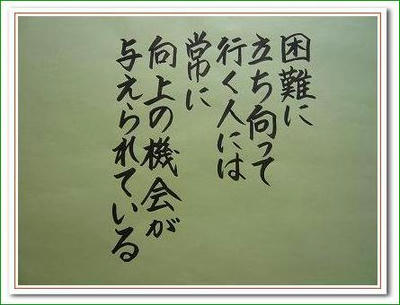 困難に
立ち向って
行く人には
常に
向上の機会が
与えられている